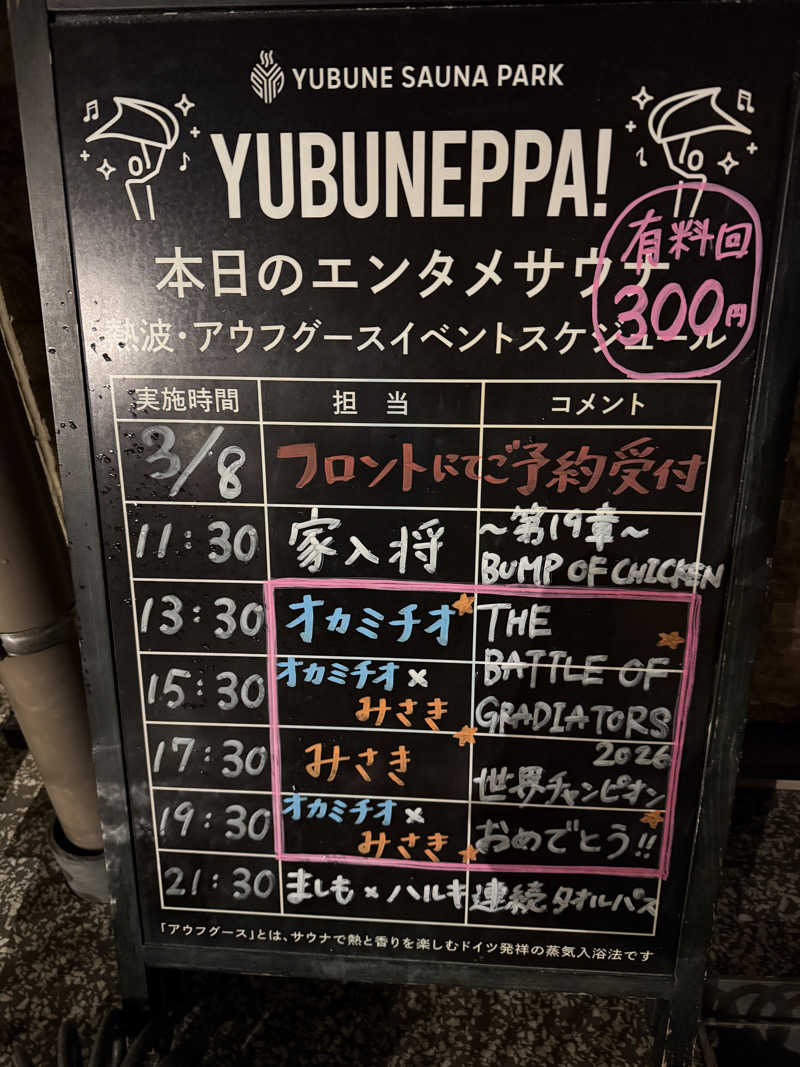 YUBUNE SAUNA PARK
YUBUNEPPA!
本日のエンタメサウナ
有料回
300円
熱波・アウフグースイベントスケジュール
実施時間 担当 コメント
3/8 フロントにてご予約受付
11:30 家入将 〜第19章〜
BUMP OF CHICKEN
13:30 オカミチオ THE
15:30 オカミチオ× BATTLE OF
みさき GRADIATORS
17:30 みさき 2026
世界チャンピオン
19:30 オカミチオ× おめでとう!!
みさき
21:30 ましも×ハルキ 連続タオルパス
「アウフグース」とは、サウナで熱と香りを楽しむドイツ発祥の蒸気入浴法です